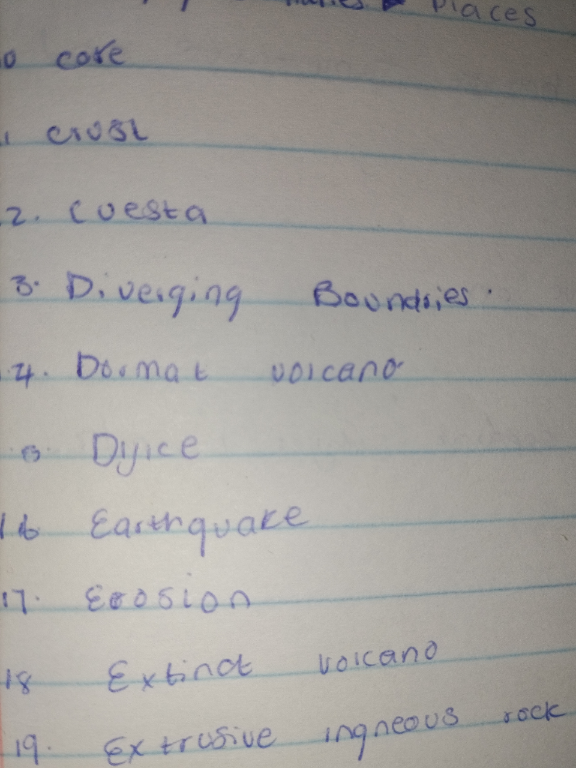 Places
0 core
1 crust
2. Cuesta
3. Diverging Boundries.
14. Dormat volcano
Dyke
16 Earthquake
17. Erosion
18 Extinct volcano
19. Extrusive ingneous rock